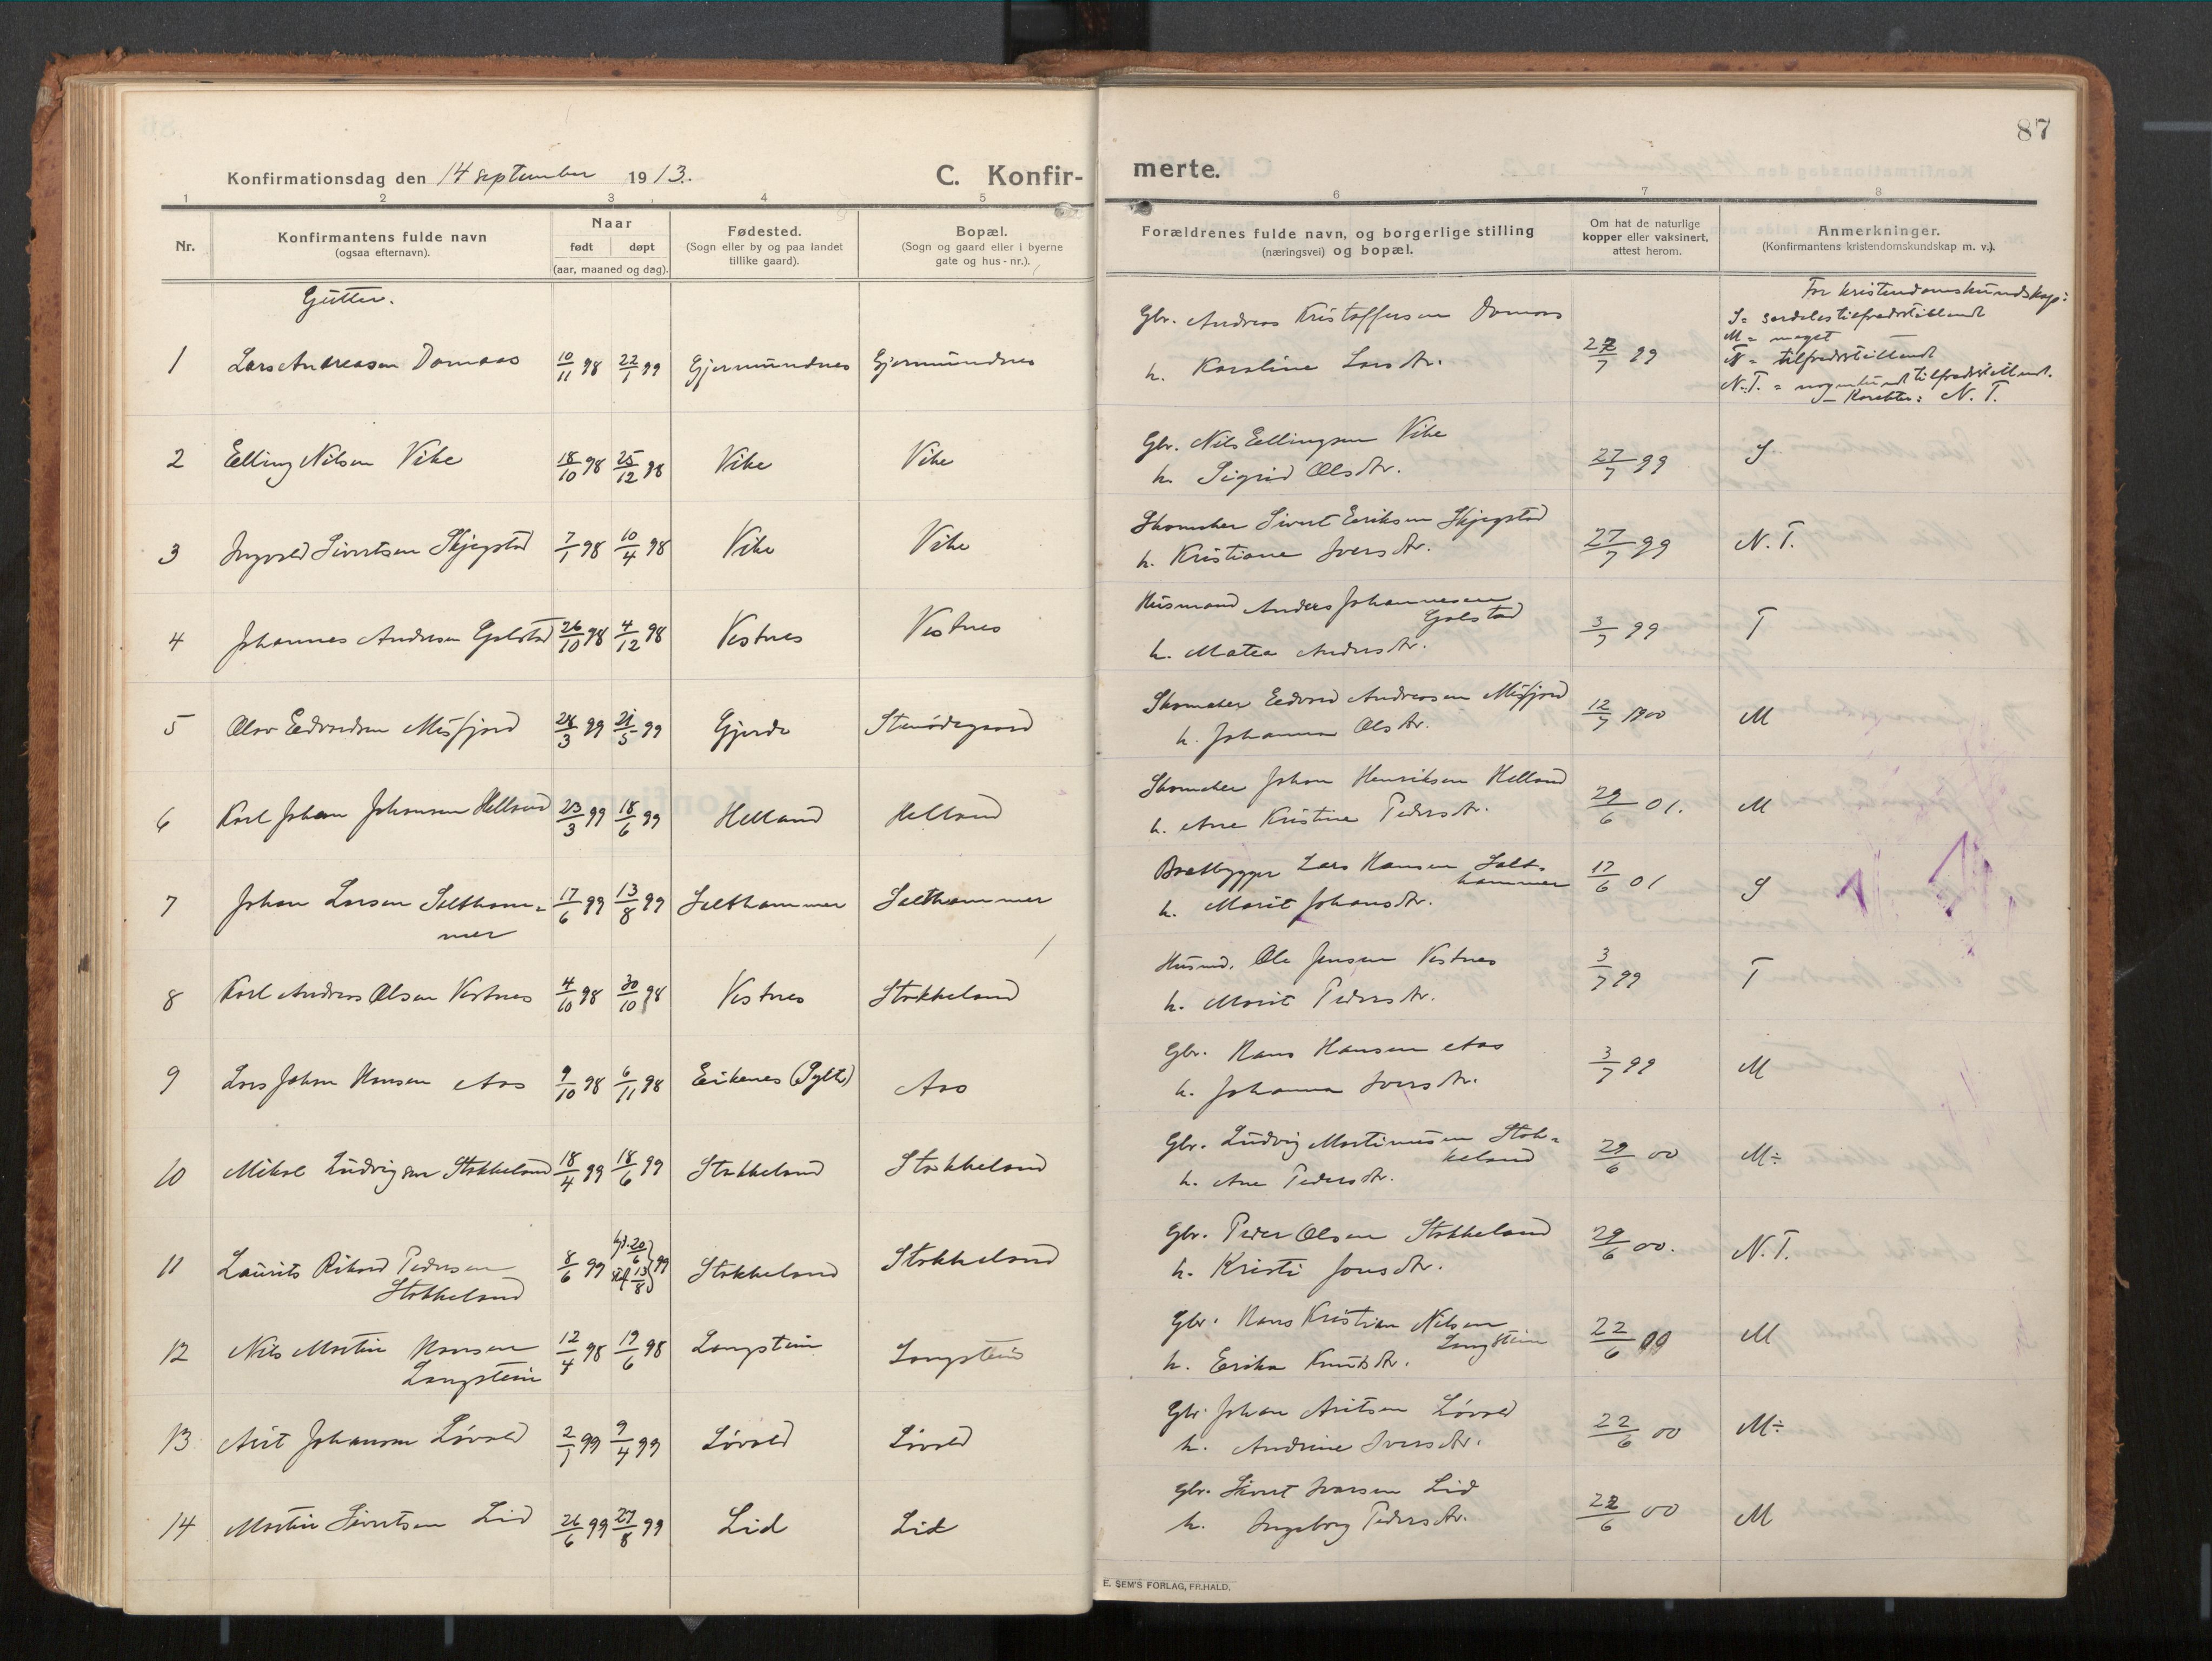 87
Konfirmationsdag den 14 september 1913.
C. Konfir-
merte.
1 2 3 4 5 6 7 8
Nr.
Konfirmantens fulde navn
(ogsaa efternavn).
Naar
født døpt
(aar, maaned og dag).
Fødested.
(Sogn eller by og paa landet
tillike gaard).
Bopæl.
(Sogn og gaard eller i byerne
gate og hus-nr.).
Forældrenes fulde navn, og borgerlige stilling
(næringsvei) og bopæl.
Om hat de naturlige
kopper eller vaksinert,
attest herom.
Anmerkninger.
(Konfirmantens kristendomskundskap m. v.).
Gutter.
For kristendomskundskap:
S = serdeles tilfredsstillende
M = meget —
T = tilfredsstillende
N.T. = nogenlunde tilfredsstillende.
Karakter: N. T.
1 Lars Andreasen Domaas 10/11 98 22/1 99 Gjermundnes Gjermundnes
Gbr. Andreas Kristoffersen Domaas
h. Karoline Larsdtr. 27/7 99
2 Elling Nilsen Vike 18/10 98 25/12 98 Vike Vike
Gbr. Nils Ellingsen Vike
h. Sigrid Olsdtr. 27/7 99 S
3 Ingvald Sivertsen Skjegstad 7/1 98 10/4 98 Vike Vike
Skomaker Sivert Eriksen Skjegstad
h. Kristiane Iversdtr. 27/7 99 N. T.
4 Johannes Andersen Galstad 26/10 98 4/12 98 Vestnes Vestnes
Husmand Anders Johannesen
Galstad
h. Matea Andersdtr. 3/7 99 T
5 Olav Edvardsen Misfjord 28/3 99 21/5 99 Gjerde Stenødegaard
Skomaker Edvard Andreasen Misfjord
h. Johanna Olsdtr. 12/7 1900 M
6 Karl Johan Johansen Helland 23/3 99 18/6 99 Helland Helland
Skomaker Johan Henriksen Helland
h. Ane Kristine Pedersdtr. 29/6 01. M
7 Johan Larsen Saltham=
mer 17/6 99 13/8 99 Salthammer Salthammer
Baatbygger Lars Hansen Salt-
hammer
h. Marit Johansdtr. 17/6 01 S
8 Karl Andreas Olsen Vestnes 4/10 98 30/10 98 Vestnes Stokkeland
Husmd. Ole Jensen Vestnes
h. Marit Pedersdtr. 3/7 99 T
9 Lars Johan Hansen Aas 9/10 98 6/11 98 Eikenes (Sylte) Aas
Gbr. Hans Hansen Aas
h. Johanna Iversdtr. 3/7 99 M
10 Mikal Ludvigsen Stokkeland 18/4 99 18/6 99 Stokkeland Stokkeland
Gbr. Ludvig Martinusen Stok=
keland
h. Ane Pedersdtr. 29/6 00 M÷
11 Laurits Rikard Pedersen
Stokkeland 8/6 99 hjd. 20/6 stf. 13/8 99 Stokkeland Stokkeland
Gbr. Peder Olsen Stokkeland
h. Kristi Jonsdtr. 29/6 00. N. T.
12 Nils Martin Hansen
Langstein 12/4 98 19/6 98 Langstein Langstein
Gbr. Hans Kristian Nilsen
Langstein
h. Erika Knutsdtr. 22/6 99 M
13 Arit Johansen Løvold 2/1 99 9/4 99 Løvold Løvold
Gbr. Johan Aritsen Løvold
h. Andrine Iversdtr. 22/6 00 M÷
14 Martin Sivertsen Lid 26/6 99 27/8 99 Lid Lid
Gbr. Sivert Ivarsen Lid
h. Ingeborg Pedersdtr. 22/6 00 M
E. SEM'S FORLAG, FR.HALD.